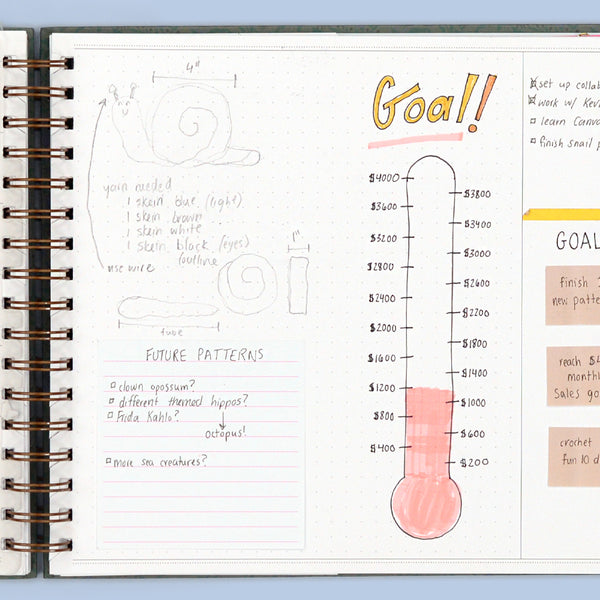 4"
yarn needed
1 skein blue (light)
1 skein brown
1 skein white
1 skein black (eyes)
(outline
use wire
1"
tube
FUTURE PATTERNS
clown opossum?
different themed hippos?
Frida Kahlo?
octopus!
more sea creatures?
Goal!!
$4000
$3800
$3600
$3400
$3200
$3000
$2800
$2600
$2400
$2200
$2000
$1800
$1600
$1400
$1200
$1000
$800
$600
$400
$200
set up collab
work w/ Kev
learn Canva
finish snail p
GOAL
finish 1
new patte
reach $4
monthl
sales go
crochet
fun 10 d